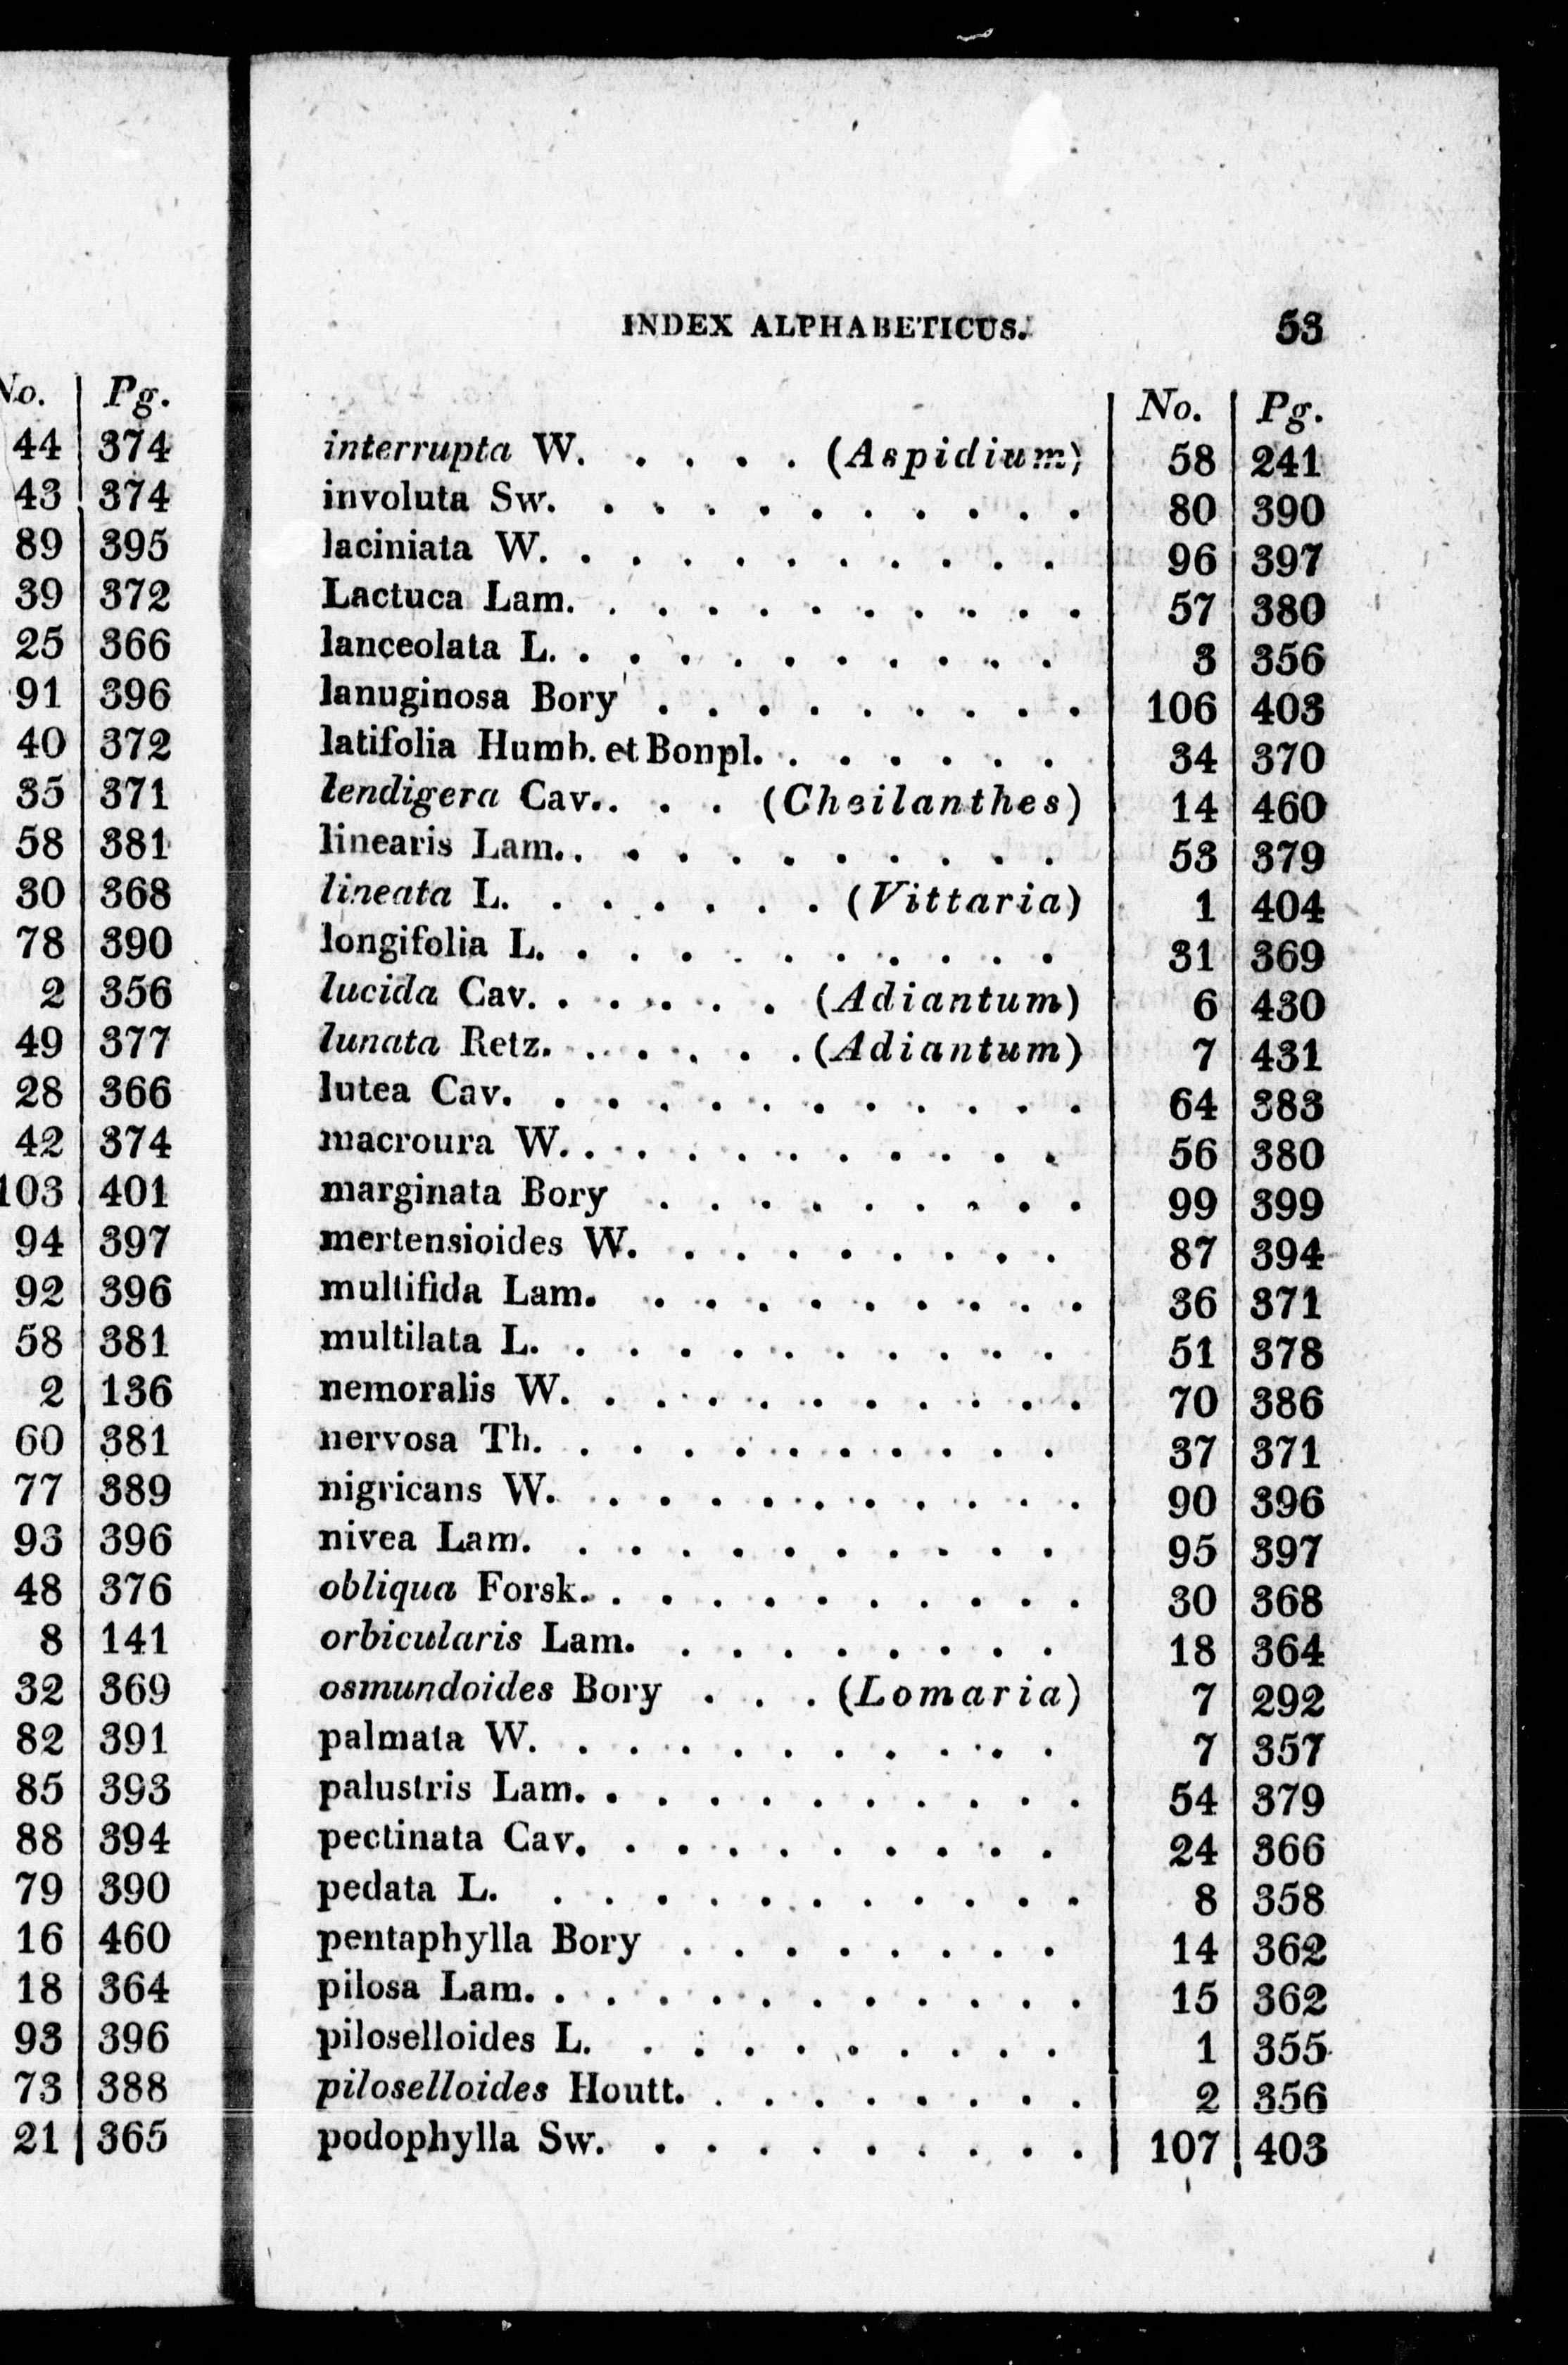 No. Pg.
44 374
43 374
89 395
39 372
25 366
91 396
40 372
35 371
58 381
30 368
78 390
2 356
49 377
28 366
42 374
103 401
94 397
92 396
58 381
2 136
60 381
77 389
93 396
48 376
8 141
32 369
82 391
85 393
88 394
79 390
16 460
18 364
93 396
73 388
21 365
INDEX ALPHABETICUS. 53
No. Pg.
interrupta W. . . . . (Aspidium) 58 241
involuta Sw. . . . . . . . . . . 80 390
laciniata W. . . . . . . . . . . 96 397
Lactuca Lam. . . . . . . . . . . 57 380
lanceolata L. . . . . . . . . . . 3 356
lanuginosa Bory . . . . . . . . . 106 403
latifolia Humb. et Bonpl. . . . . . . 34 370
lendigera Cav. . . . (Cheilanthes) 14 460
linearis Lam. . . . . . . . . . . 53 379
lineata L. . . . . . . (Vittaria) 1 404
longifolia L. . . . . . . . . . . 31 369
lucida Cav. . . . . . (Adiantum) 6 430
lunata Retz. . . . . . (Adiantum) 7 431
lutea Cav. . . . . . . . . . . . 64 383
macroura W. . . . . . . . . . . 56 380
marginata Bory . . . . . . . . . 99 399
mertensioides W. . . . . . . . . 87 394
multifida Lam. . . . . . . . . . 36 371
multilata L. . . . . . . . . . . 51 378
nemoralis W. . . . . . . . . . . 70 386
nervosa Th. . . . . . . . . . . 37 371
nigricans W. . . . . . . . . . . 90 396
nivea Lam. . . . . . . . . . . 95 397
obliqua Forsk. . . . . . . . . . . 30 368
orbicularis Lam. . . . . . . . . 18 364
osmundoides Bory . . . (Lomaria) 7 292
palmata W. . . . . . . . . . . 7 357
palustris Lam. . . . . . . . . . . 54 379
pectinata Cav. . . . . . . . . . 24 366
pedata L. . . . . . . . . . . . 8 358
pentaphylla Bory . . . . . . . . 14 362
pilosa Lam. . . . . . . . . . . . 15 362
piloselloides L. . . . . . . . . . 1 355
piloselloides Houtt. . . . . . . . . 2 356
podophylla Sw. . . . . . . . . . 107 403